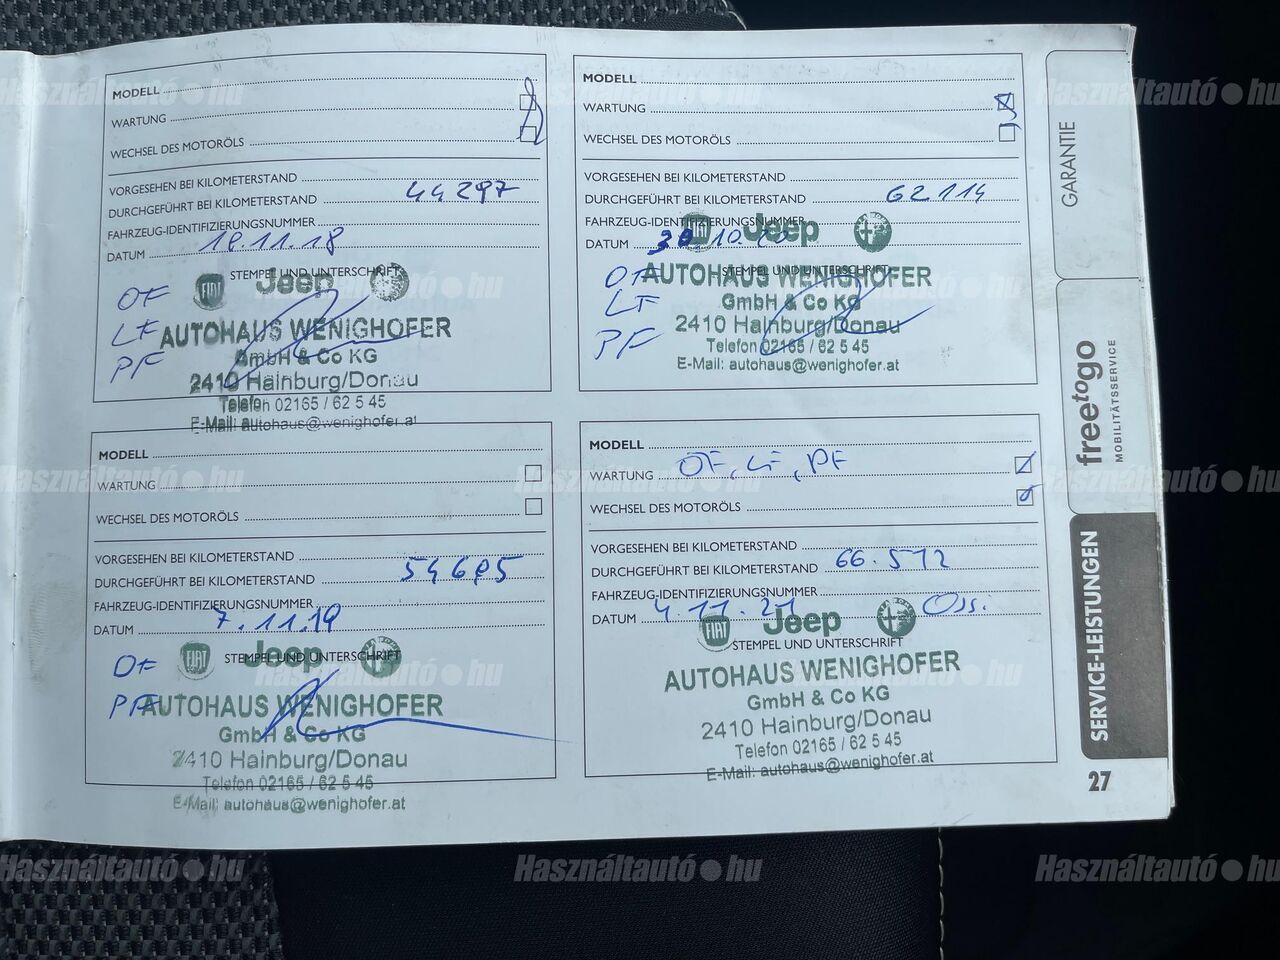 MODELL
WARTUNG
WECHSEL DES MOTORÖLS
VORGESEHEN BEI KILOMETERSTAND
DURCHGEFÜHRT BEI KILOMETERSTAND 44297
FAHRZEUG-IDENTIFIZIERUNGSNUMMER
DATUM 18.11.18
STEMPEL UND UNTERSCHRIFT
OF
LF
PF
FIAT Jeep
AUTOHAUS WENIGHOFER
GmbH & Co KG
2410 Hainburg/Donau
Telefon 02165 / 62 5 45
E-Mail: autohaus@wenighofer.at
MODELL
WARTUNG
WECHSEL DES MOTORÖLS
VORGESEHEN BEI KILOMETERSTAND
DURCHGEFÜHRT BEI KILOMETERSTAND 62114
FAHRZEUG-IDENTIFIZIERUNGSNUMMER
DATUM 30.10.20
STEMPEL UND UNTERSCHRIFT
OF
LF
PF
FIAT Jeep
AUTOHAUS WENIGHOFER
GmbH & Co KG
2410 Hainburg/Donau
Telefon 02165 / 62 5 45
E-Mail: autohaus@wenighofer.at
MODELL
WARTUNG
WECHSEL DES MOTORÖLS
VORGESEHEN BEI KILOMETERSTAND
DURCHGEFÜHRT BEI KILOMETERSTAND
FAHRZEUG-IDENTIFIZIERUNGSNUMMER
DATUM 7.11.19
STEMPEL UND UNTERSCHRIFT
OF
PF
FIAT Jeep
AUTOHAUS WENIGHOFER
GmbH & Co KG
2410 Hainburg/Donau
Telefon 02165 / 62 5 45
E-Mail: autohaus@wenighofer.at
MODELL
WARTUNG OF, LF, PF
WECHSEL DES MOTORÖLS
VORGESEHEN BEI KILOMETERSTAND
DURCHGEFÜHRT BEI KILOMETERSTAND 66.572
FAHRZEUG-IDENTIFIZIERUNGSNUMMER
DATUM 4.11.21
STEMPEL UND UNTERSCHRIFT
FIAT Jeep
AUTOHAUS WENIGHOFER
GmbH & Co KG
2410 Hainburg/Donau
Telefon 02165 / 62 5 45
E-Mail: autohaus@wenighofer.at
GARANTIE
freetogo
MOBILITÄTSSERVICE
SERVICE-LEISTUNGEN
27
Használtautó hu